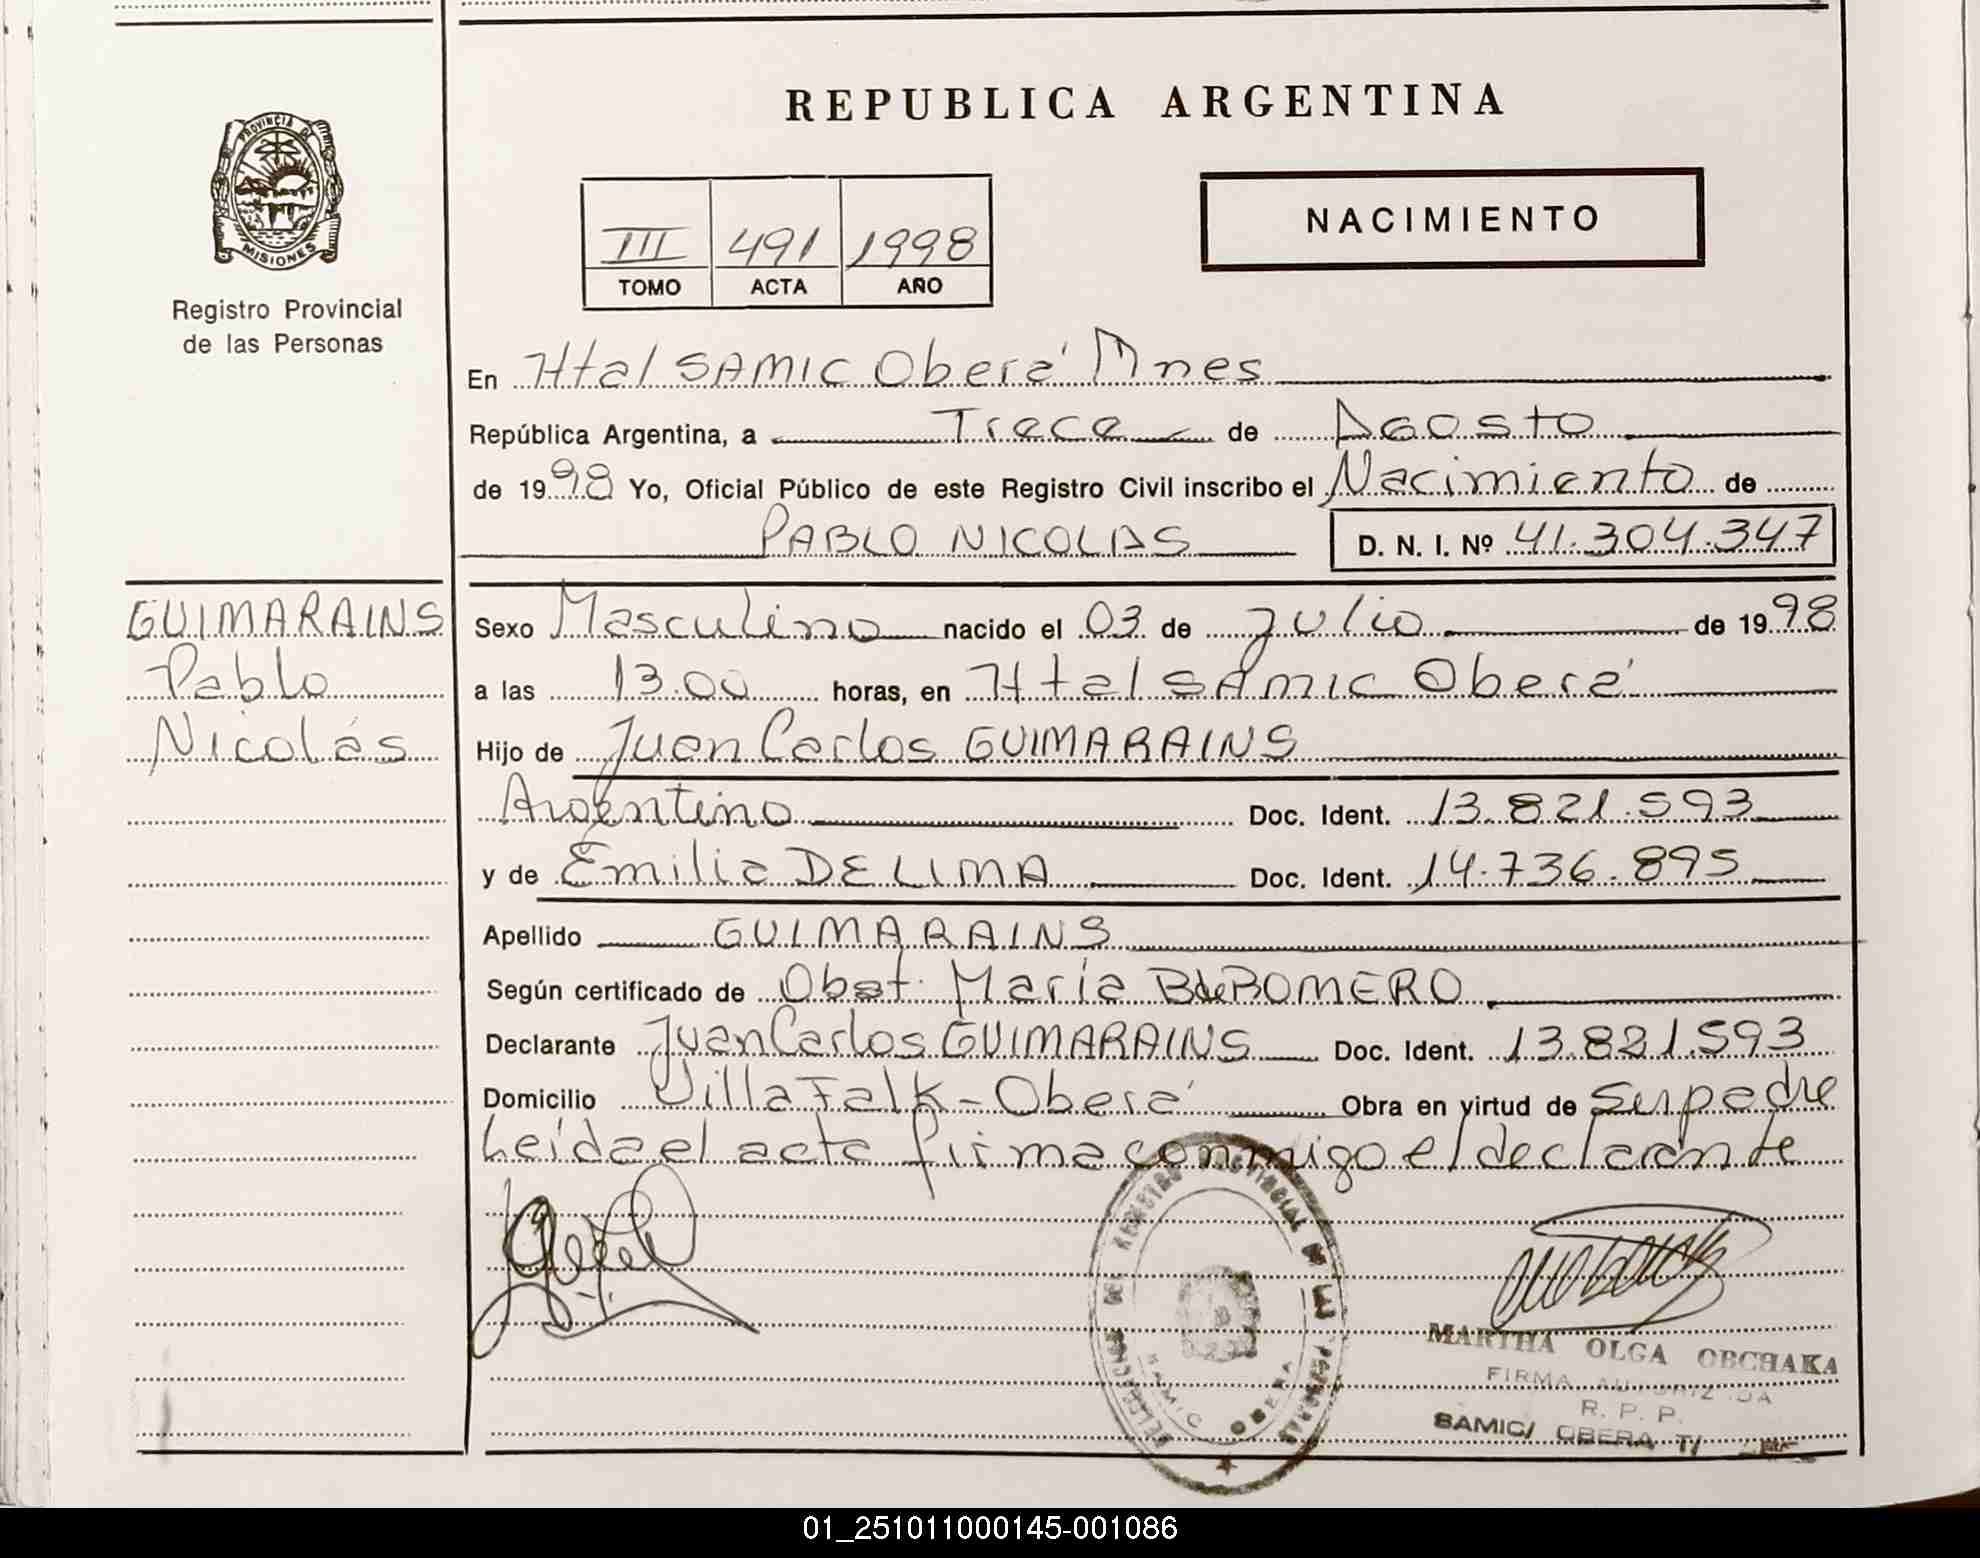 REPUBLICA ARGENTINA
PROVINCIA DE
MISIONES
Registro Provincial
de las Personas
NACIMIENTO
III 491 1998
TOMO ACTA AÑO
En Htal SAMIC Oberá Mnes
República Argentina, a Trece de Agosto
de 1998 Yo, Oficial Público de este Registro Civil inscribo el Nacimiento de
PABLO NICOLAS D. N. I. Nº 41.304.347
GUIMARAINS
Pablo
Nicolás
Sexo Masculino nacido el 03 de Julio de 1998
a las 13.00 horas, en Htal SAMIC Oberá
Hijo de Juan Carlos GUIMARAINS
Argentino Doc. Ident. 13.821.593
y de Emilia DE LIMA Doc. Ident. 14.736.895
Apellido GUIMARAINS
Según certificado de Obst. María B de ROMERO
Declarante Juan Carlos GUIMARAINS Doc. Ident. 13.821.593
Domicilio Villa Falk - Oberá Obra en virtud de ser padre
Leída el acta firma conmigo el declarante
REGISTRO PROVINCIAL DE LAS PERSONAS
SAMIC OBERA
MARTHA OLGA OBCHAKA
FIRMA AUTORIZADA
R. P. P.
SAMIC/ OBERA
01_251011000145-001086